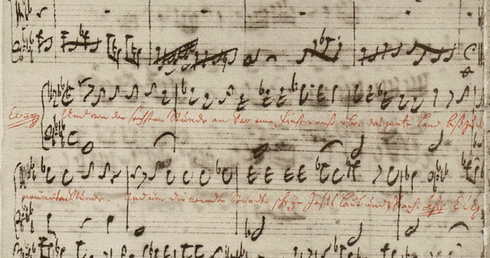 Evang Und von der sechsten Stunde an war eine Finsternuß über das gantze Land, biß zu
neundten Stunde. Und um die neundte Stunde schrye Jesus laut und sprach